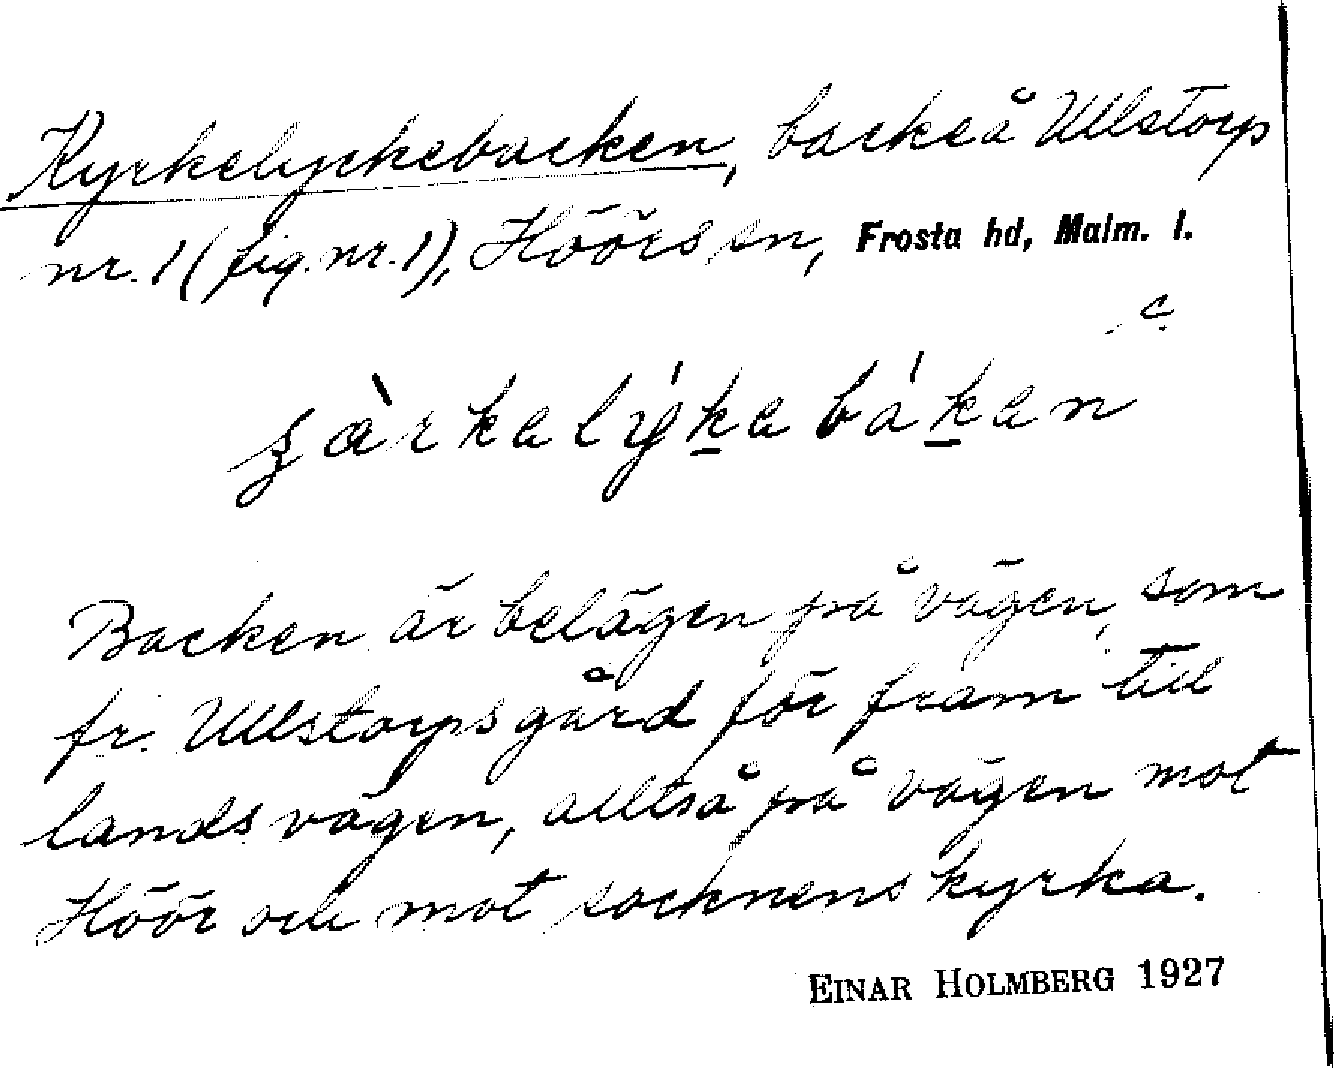 Kyrkelyckebacken, backe å Ullstorp
nr. 1 (fig. nr. 1), Höörs sn, Frosta hd, Malm. l.
Backen är belägen på vägen, som
fr. Ullstorpsgård för fram till
landsvägen, alltså på vägen mot
Höör och mot socknens kyrka.
EINAR HOLMBERG 1927